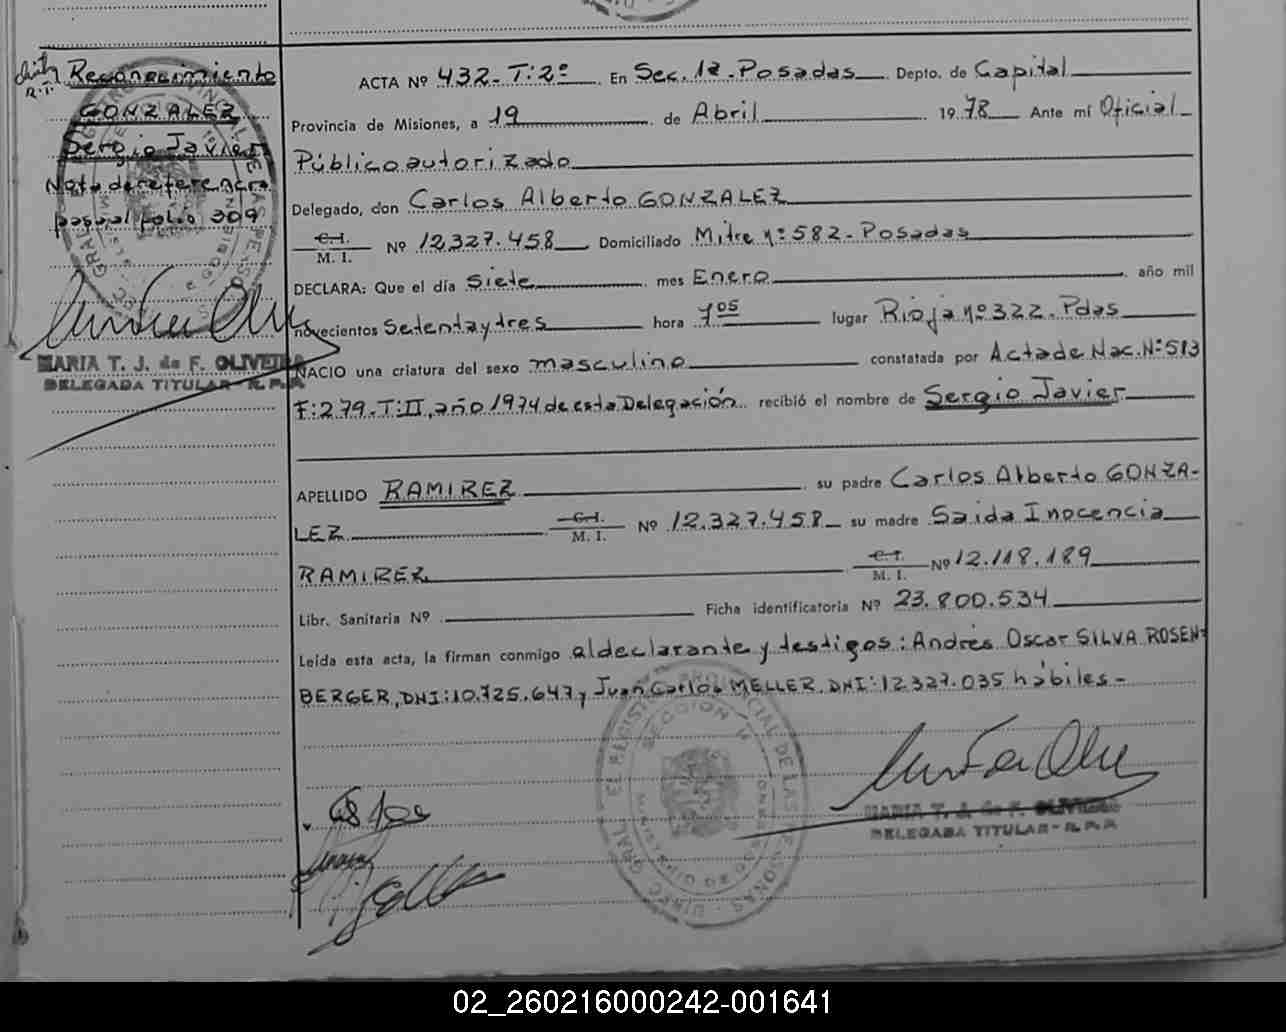 Reconocimiento
GONZALEZ
Sergio Javier
Nota de referencia
pasa al folio 309
MARIA T. J. de F. OLIVEIRA
DELEGADA TITULAR - R. P. P.
ACTA Nº 432-T:2º En Sec. 1ª-Posadas Depto. de Capital
Provincia de Misiones, a 19 de Abril 1978 Ante mí Oficial
Público autorizado
Delegado, don Carlos Alberto GONZALEZ
C.I. M. I. Nº 12.327.458 Domiciliado Mitre nº 582-Posadas
DECLARA: Que el día Siete mes Enero año mil
novecientos Setenta y tres hora 7 05 lugar Rioja nº 322. Pdas
NACIO una criatura del sexo masculino constatada por Acta de Nac. Nº 513
F: 279-T: II, año 1974 de esta Delegación recibió el nombre de Sergio Javier
APELLIDO RAMIREZ su padre Carlos Alberto GONZA-
LEZ C.I. M. I. Nº 12.327.458 su madre Saida Inocencia
RAMIREZ C.I. M. I. Nº 12.118.189
Libr. Sanitaria Nº Ficha identificatoria Nº 23.800.534
Leída esta acta, la firman conmigo al declarante y testigos: Andrés Oscar SILVA ROSEN-
BERGER, DNI: 10.725.647 y Juan Carlos MELLER. DNI: 12.327.035 hábiles-
SECCION 1ª
MARIA T. J. de F. OLIVEIRA
DELEGADA TITULAR - R. P. P.
02_260216000242-001641